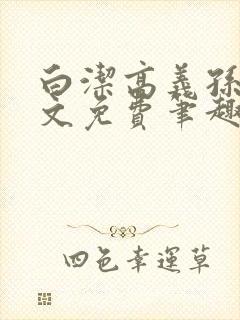 白潔高義孫
文免費筆趣
四色幸運草